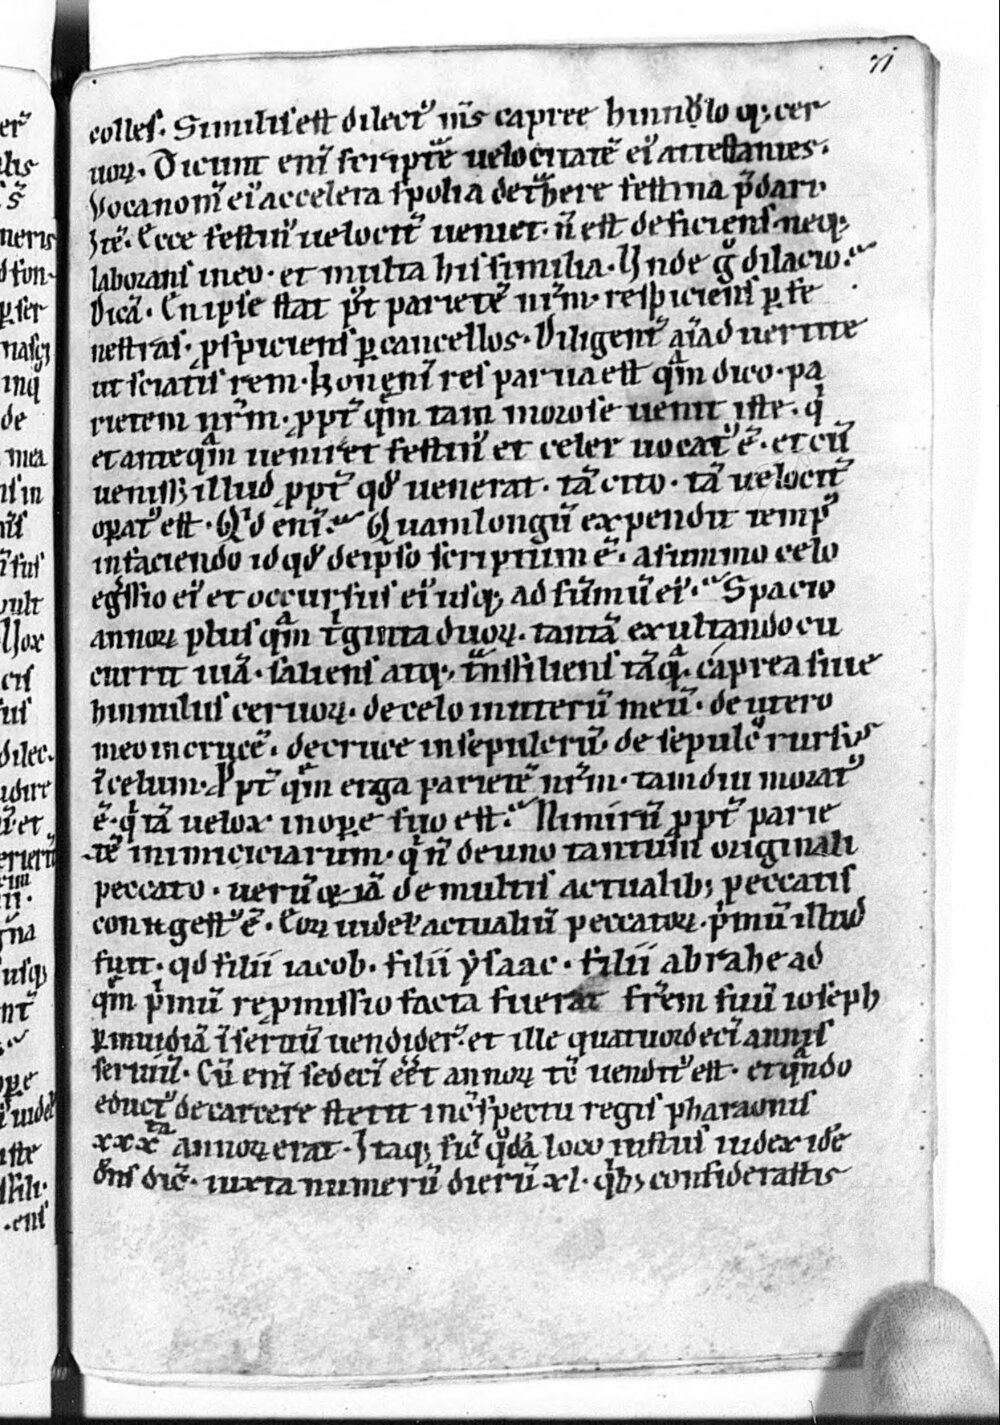 71
colles. Similis est dilect᷒ m̅s capree hinnulo q; cer
uoꝝ. Dicunt eni̅ scripte̅ velocitate̅ ei᷒ attestantes.
Voca nom̅ ei᷒ accelera spolia det̅here festina p̅dari.
Ite̅. Ecce festin᷒ uelocit̅ ueniet. n̅ est deficiens neq;
laborans in eo. et multa his similia. Unde g̊ dilacio.
Dica̅. En ipse stat p᷒t pariete̅ nr̅m. respiciens ꝑ fe
nestras. ꝓspiciens ꝑ cancellos. Diligent̅ ai̅aduertite
ut sciatis rem. Hon eni̅ res parua est qᵃm dico. pa
rietem nr̅m. ꝓpt̅ qᵃm tam morose uenit iste. qⁱ
et anteqᵃm ueniret festin᷒ et celer uocat᷒ e̅. et cu̅
uenissꝫ illud ꝓpt̅ qd̕ uenerat. ta̅ cito. ta̅ uelocit̅
oꝑat᷒ est. Qⁱd eni̅. Quam longu̅ expendit temp᷒
in faciendo id qd̕ de ipso scriptum e̅. a summo celo
eg̅ssio ei᷒ et occursus ei᷒ usq; ad su̅mu̅ ei᷒. Spacio
annoꝝ plus qᵃm tⁱginta duoꝝ. tanta̅ exultando cu
currit uia̅. saliens atq; tᵃnssiliens ta̅qᵃ. caprea siue
hinnulus ceruoꝝ. de celo in uteru̅ meu̅. de utero
meo in cruce̅. de cruce in sepulcru̅. de sepulcᵒ rursus
i̅ celum. Ꝓpt̅ qᵃm erga pariete̅ nr̅m. tamdiu morat᷒
e̅. qⁱ ta̅ uelox in oꝑe suo est. Nimiru̅ ꝓpt̅ parie
te̅ inimiciciarum. qⁱ n̅ de uno tantum originali
peccato. ueru̅ & ia̅ de multis actualibꝫ peccatis
congest᷒ e̅. Eoꝝ uidel̕ actualiu̅ peccatoꝝ. pⁱmu̅ illud
fuit. qd filii iacob. filii ysaac. filii abrahe ad
qᵃm pⁱmu̅ reꝓmissio facta fuerat fr̅em suu̅ ioseph
ꝑ inuidia̅ i̅ seruu̅ uendider̅. et ille quatuordeci̅ annis
seruiu̅. Cu̅ eni̅ sedeci̅ ee̅t annoꝝ te̅ uendit᷒ est. et qᵃndo
educt᷒ de carcere stetit in c̅spectu regis pharaonis
xxxᵗᵃ annoꝝ erat. Itaq; sic̅ qᵒda̅ loco iustus iudex ide̅
dn̅s dic̅. iuxta numeru̅ dieru̅ xl. qⁱbꝫ considerastis